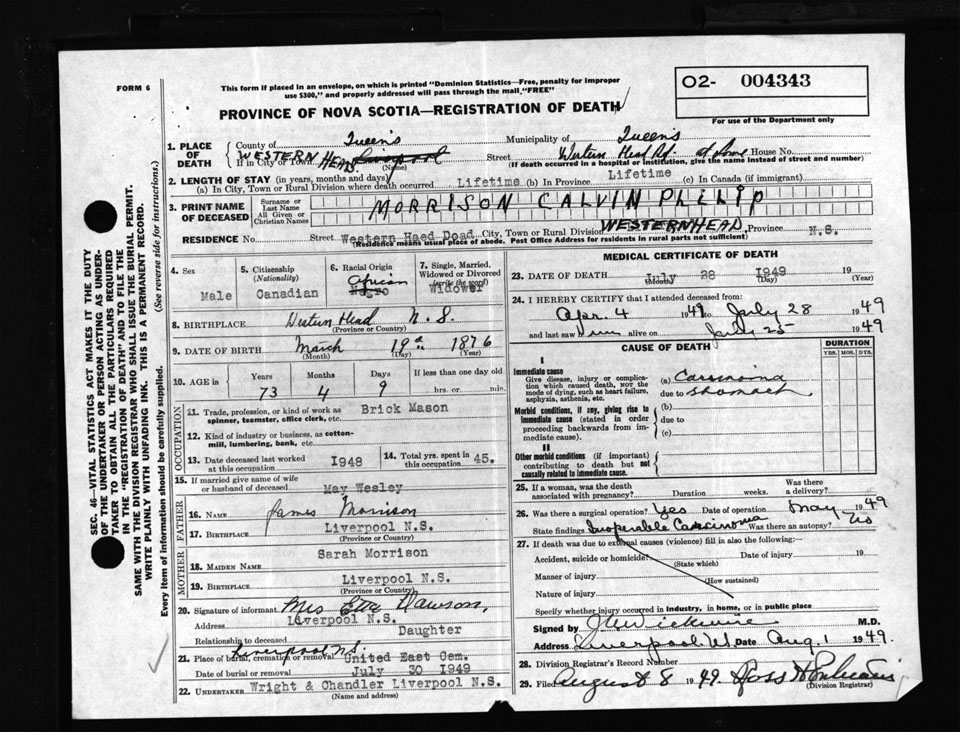 FORM 6
This form if placed in an envelope, on which is printed "Dominion Statistics—Free, penalty for improper
use $300," and properly addressed will pass through the mail "FREE"
O2- 004343
PROVINCE OF NOVA SCOTIA—REGISTRATION OF DEATH
For use of the Department only
1. PLACE OF DEATH
County of Queen's Municipality of Queen's
If in City or Town WESTERN HEAD. Liverpool (Name) Street Western Head Rd. at home House No.
(If death occurred in a hospital or institution, give the name instead of street and number)
2. LENGTH OF STAY (in years, months and days)
(a) In City, Town or Rural Division where death occurred Lifetime (b) In Province Lifetime (c) In Canada (if immigrant)
3. PRINT NAME OF DECEASED
Surname or Last Name
All Given or Christian Names
MORRISON CALVIN PHILIP
RESIDENCE No. Street Western Haed Doad City, Town or Rural Division WESTERN HEAD, Province N.S.
(Residence means usual place of abode. Post Office Address for residents in rural parts not sufficient)
4. Sex
Male
5. Citizenship (Nationality)
Canadian
6. Racial Origin
African
Negro
7. Single, Married, Widowed or Divorced (write the word)
Widower
8. BIRTHPLACE Western Head N.S.
(Province or Country)
9. DATE OF BIRTH March 19th 1876
(Month) (Day) (Year)
10. AGE in
Years Months Days If less than one day old
73 4 9 hrs. or min.
OCCUPATION
11. Trade, profession, or kind of work as spinner, teamster, office clerk, etc. Brick Mason
12. Kind of industry or business, as cotton-mill, lumbering, bank, etc.
13. Date deceased last worked at this occupation I948
14. Total yrs. spent in this occupation 45.
15. If married give name of wife or husband of deceased May Wesley
FATHER
16. NAME James Morrison
17. BIRTHPLACE Liverpool N.S.
(Province or Country)
MOTHER
18. MAIDEN NAME Sarah Morrison
19. BIRTHPLACE Liverpool N.S.
(Province or Country)
20. Signature of informant Mrs Etta Dawson,
Address Liverpool N.S.
Relationship to deceased Daughter
21. Place of burial, cremation or removal Liverpool N.S. United East Cem.
Date of burial or removal July 30 I949
22. UNDERTAKER Wright & Chandler Liverpool N.S.
MEDICAL CERTIFICATE OF DEATH
23. DATE OF DEATH July 28 I949 19
(Month) (Day) (Year)
24. I HEREBY CERTIFY that I attended deceased from:
Apr. 4 1949 to July 28 1949
and last saw him alive on July 25 1949
CAUSE OF DEATH
DURATION
YRS. MOS. DYS.
I
Immediate cause
Give disease, injury or complication which caused death, not the mode of dying, such as heart failure, asphyxia, asthenia, etc.
(a) Carcinoma
due to stomach
Morbid conditions, if any, giving rise to immediate cause (stated in order proceeding backwards from immediate cause).
(b)
due to
(c)
II
Other morbid conditions (if important) contributing to death but not causally related to immediate cause.
25. If a woman, was the death associated with pregnancy? Duration weeks. Was there a delivery?
26. Was there a surgical operation? Yes Date of operation May 1949
State findings Inoperable Carcinoma Was there an autopsy? No
27. If death was due to external causes (violence) fill in also the following:—
Accident, suicide or homicide? Date of injury 19
(State which)
Manner of injury
(How sustained)
Nature of injury
Specify whether injury occurred in industry, in home, or in public place
Signed by M.D.
Address Liverpool Date Aug. 1 1949.
28. Division Registrar's Record Number
29. Filed August 8 1949
(Division Registrar)
SEC. 46—VITAL STATISTICS ACT MAKES IT THE DUTY
OF THE UNDERTAKER OR PERSON ACTING AS UNDER-
TAKER TO OBTAIN ALL THE PARTICULARS REQUIRED
IN THE "REGISTRATION OF DEATH" AND TO FILE THE
SAME WITH THE DIVISION REGISTRAR WHO SHALL ISSUE THE BURIAL PERMIT.
WRITE PLAINLY WITH UNFADING INK. THIS IS A PERMANENT RECORD.
Every item of information should be carefully supplied. (See reverse side for instructions.)